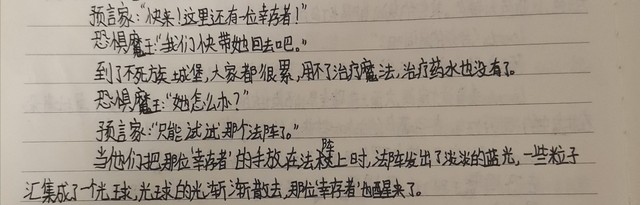 预言家:“快来!这里还有一位幸存者!”
恐惧魔王:“我们快带她回去吧。”
到了不死族城堡,大家都很累,用不了治疗魔法,治疗药水也没有了。
恐惧魔王:“她怎么办?”
预言家:“只能试试那个法阵了。”
当他们把那位‘幸存者’的手放在法阵上时,法阵发出了淡淡的蓝光,一些粒子
汇集成了一个光球,光球的光渐渐散去,那位‘幸存者’也醒来了。